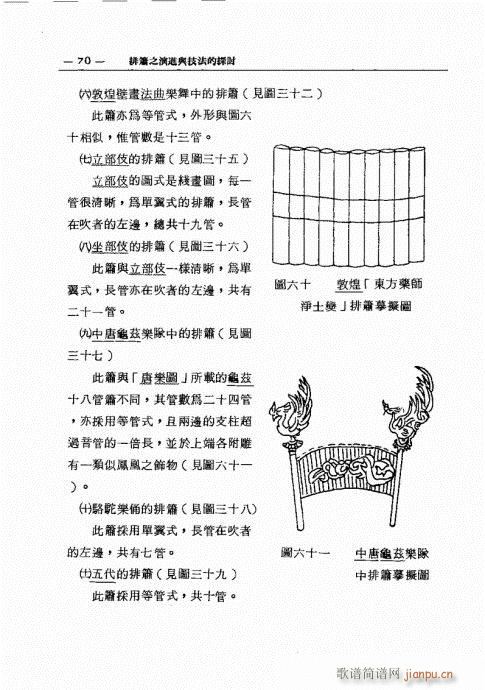 — 70 — 排簫之演進與技法的探討
㈥敦煌壁畫法曲樂舞中的排簫（見圖三十二）
此簫亦爲等管式，外形與圖六
十相似，惟管數是十三管。
㈦立部伎的排簫（見圖三十五）
立部伎的圖式是綫畫圖，每一
管很清晰，爲單翼式的排簫，長管
在吹者的左邊，總共十九管。
㈧坐部伎的排簫（見圖三十六）
此簫與立部伎一樣清晰，爲單
翼式，長管亦在吹者的左邊，共有
二十一管。
㈨中唐龜茲樂隊中的排簫（見圖
三十七）
此簫與「唐樂圖」所載的龜茲
十八管簫不同，其管數爲二十四管
，亦採用等管式，且兩邊的支柱超
過音管的一倍長，並於上端各附雕
有一類似鳳凰之飾物（見圖六十一
）。
㈩駱駝樂俑的排簫（見圖三十八）
此簫採用單翼式，長管在吹者
的左邊，共有七管。
(十一)五代的排簫（見圖三十九）
此簫採用等管式，共十管。
圖六十 敦煌「東方藥師
淨土變」排簫摹擬圖
圖六十一 中唐龜茲樂隊
中排簫摹擬圖
歌谱简谱网
jianpu.cn